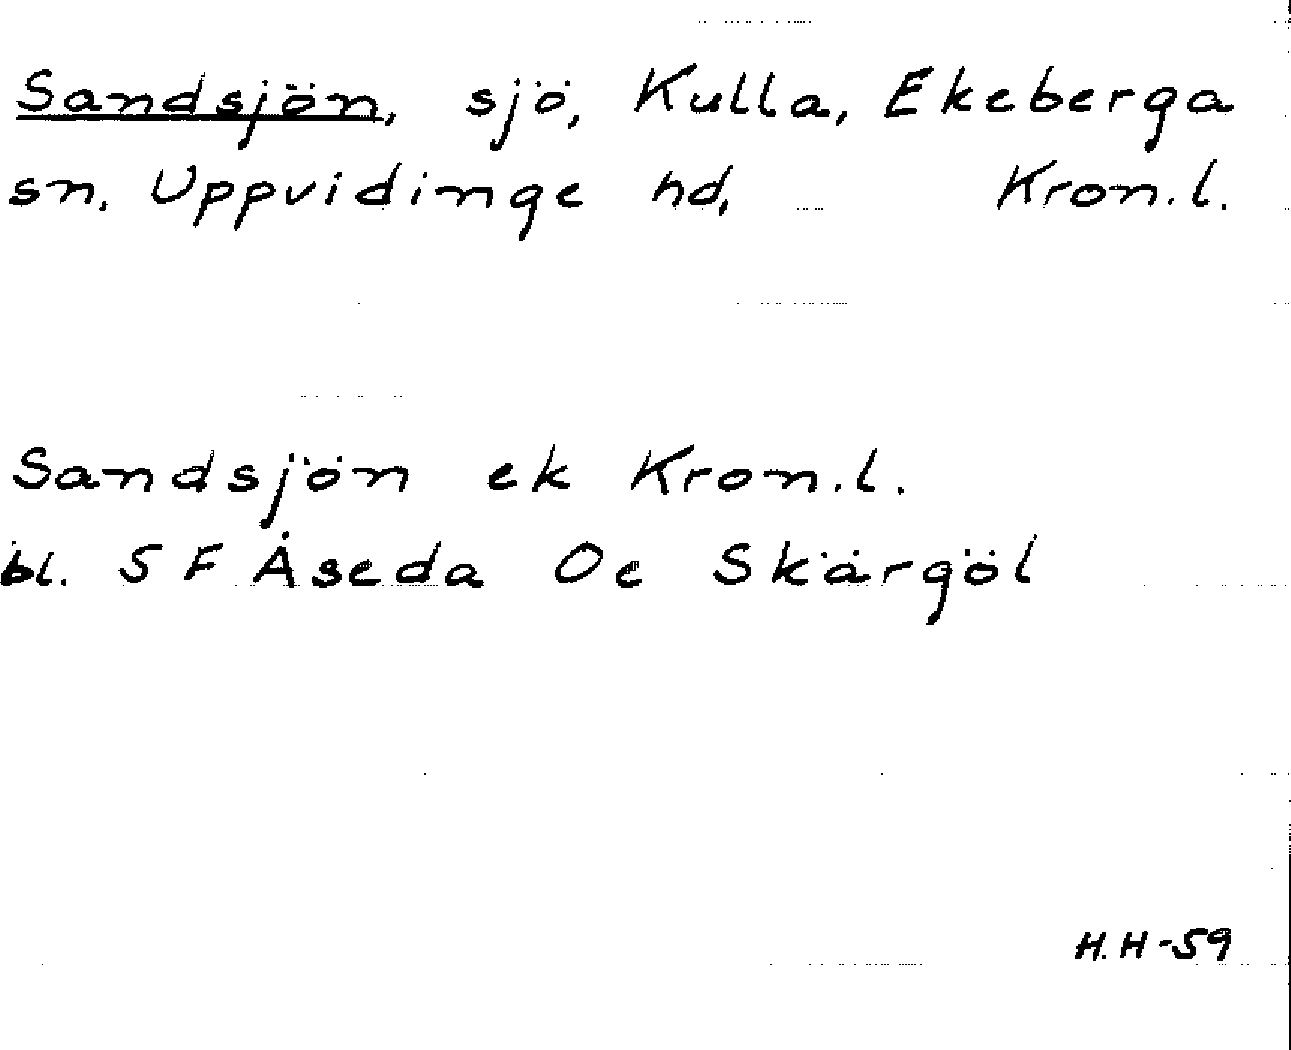 Sandsjön, sjö, Kulla, Ekeberga
sn. Uppvidinge hd, Kron.l.
Sandsjön ek Kron.l.
bl. 5 F Åseda Oe Skärgöl
H.H-59